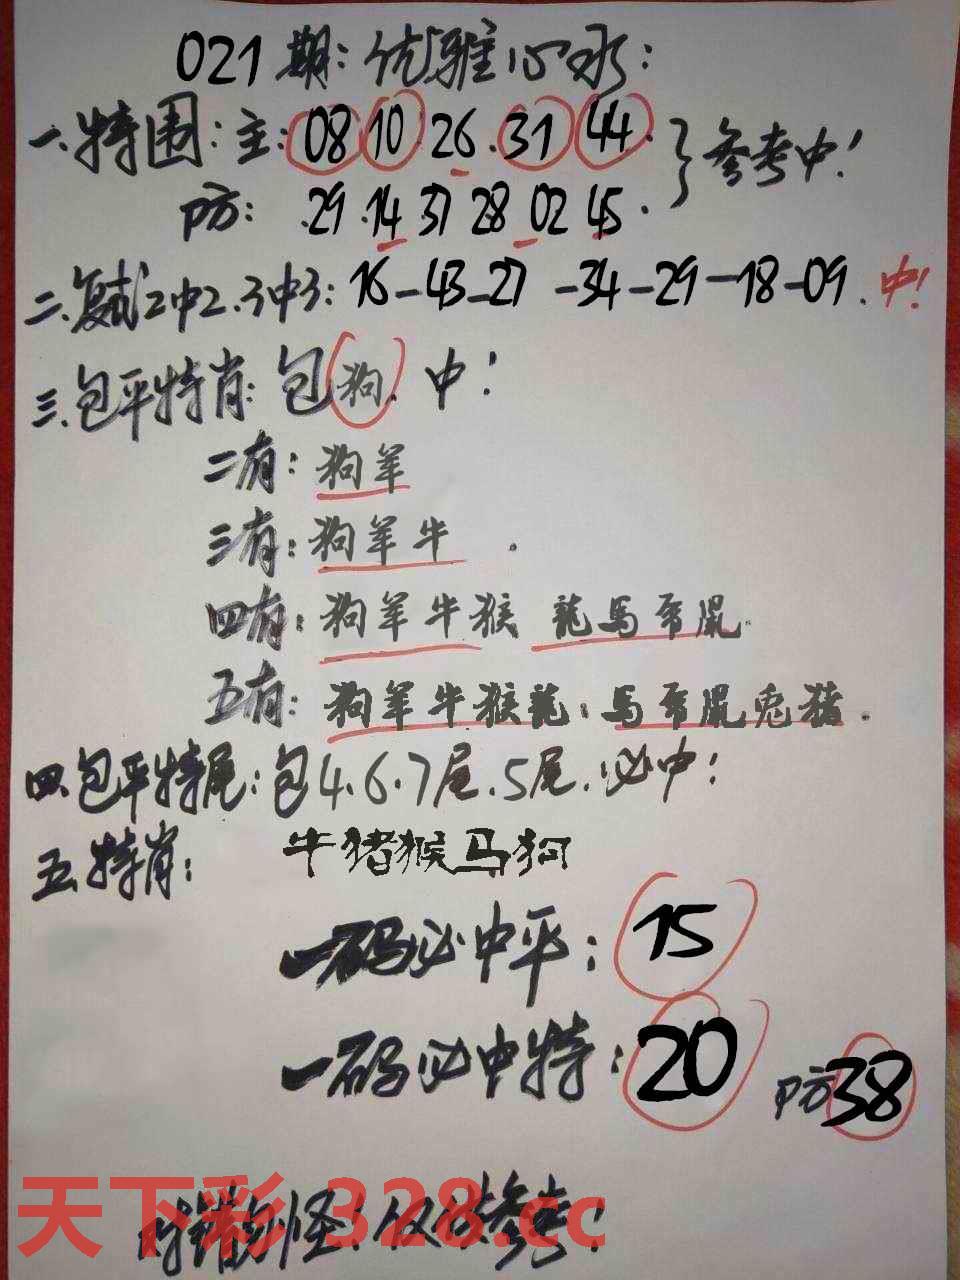 021期:优雅心水:
一.特围:主:08 10 26.31 44.}参考中!
防:.29.14 37 28 02 45.
二.复试2中2.3中3:16-43-27-34-29-18-09.中!
三.包平特肖:包狗.中!
二有:狗羊
三有:狗羊牛.
四有:狗羊牛猴 龍馬 鼠.
五有:狗羊牛猴龍:馬 鼠兔猪.
四.包平特尾:包4.6.7尾.5尾.必中!
五.特肖:牛猪猴马狗
一码必中平:15
一码必中特:20 防38
对错勿怪!仅供参考!
天下彩 328.cc